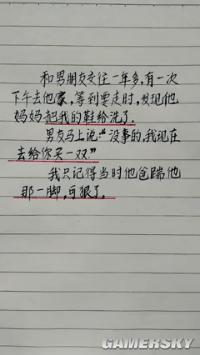 和男朋友交往一年多,有一次
下午去他家,等到要走时,发现他
妈妈把我的鞋给洗了.
男友马上说:“没事的,我现在
去给你买一双.”
我只记得当时他爸踹他
那一脚,可狠了.
GAMERSKY